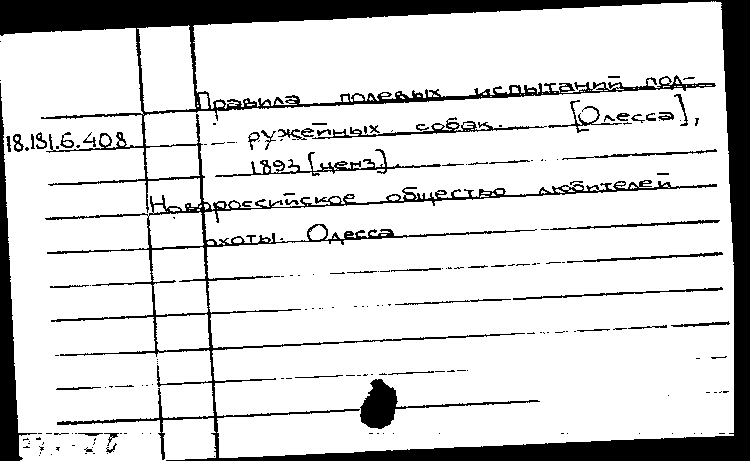 Правила полевых испытаний под-
18.181.6.408. ружейных собак. [Одесса],
1893 [ценз].
Новороссийское общество любителей
охоты. Одесса